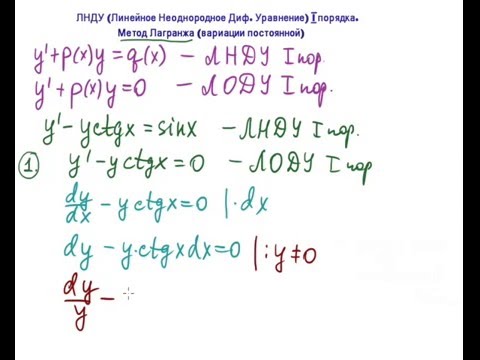 ЛНДУ (Линейное Неоднородное Диф. Уравнение) I порядка.
Метод Лагранжа (вариации постоянной)
y'+p(x)y=q(x) – ЛНДУ I пор.
y'+p(x)y=0 – ЛОДУ I пор.
y'–yctgx=sinx – ЛНДУ I пор.
1. y'–yctgx=0 – ЛОДУ I пор
dy/dx – yctgx=0 |·dx
dy – y·ctgxdx=0 |:y≠0
dy/y –